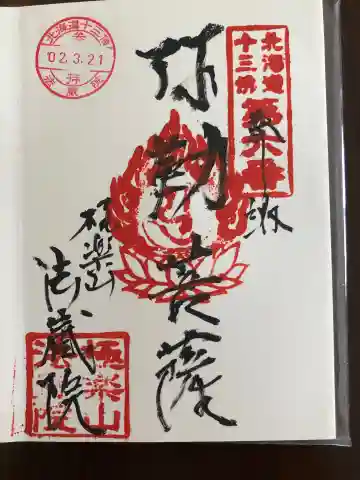 北海道
十三佛
第六番
奉拝
弥勒菩薩
極楽山
法蔵院
北海道十三佛
02.3.21
法蔵院
極楽山
法蔵院